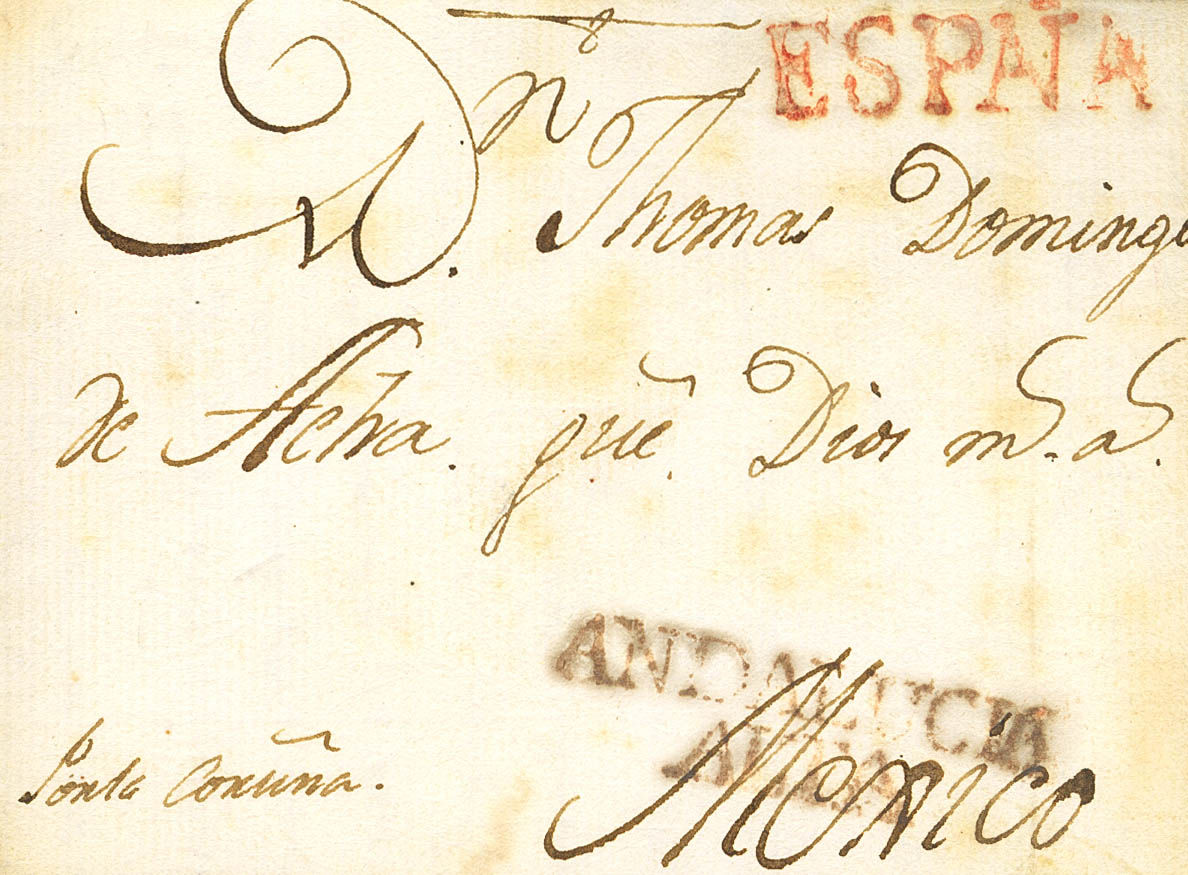 ESPÑA
A Dn. Thomas Domingo
de Acha. gue. Dios ms. as.
ANDALUCIA
ALTA
Porla Coruña.
Mexico